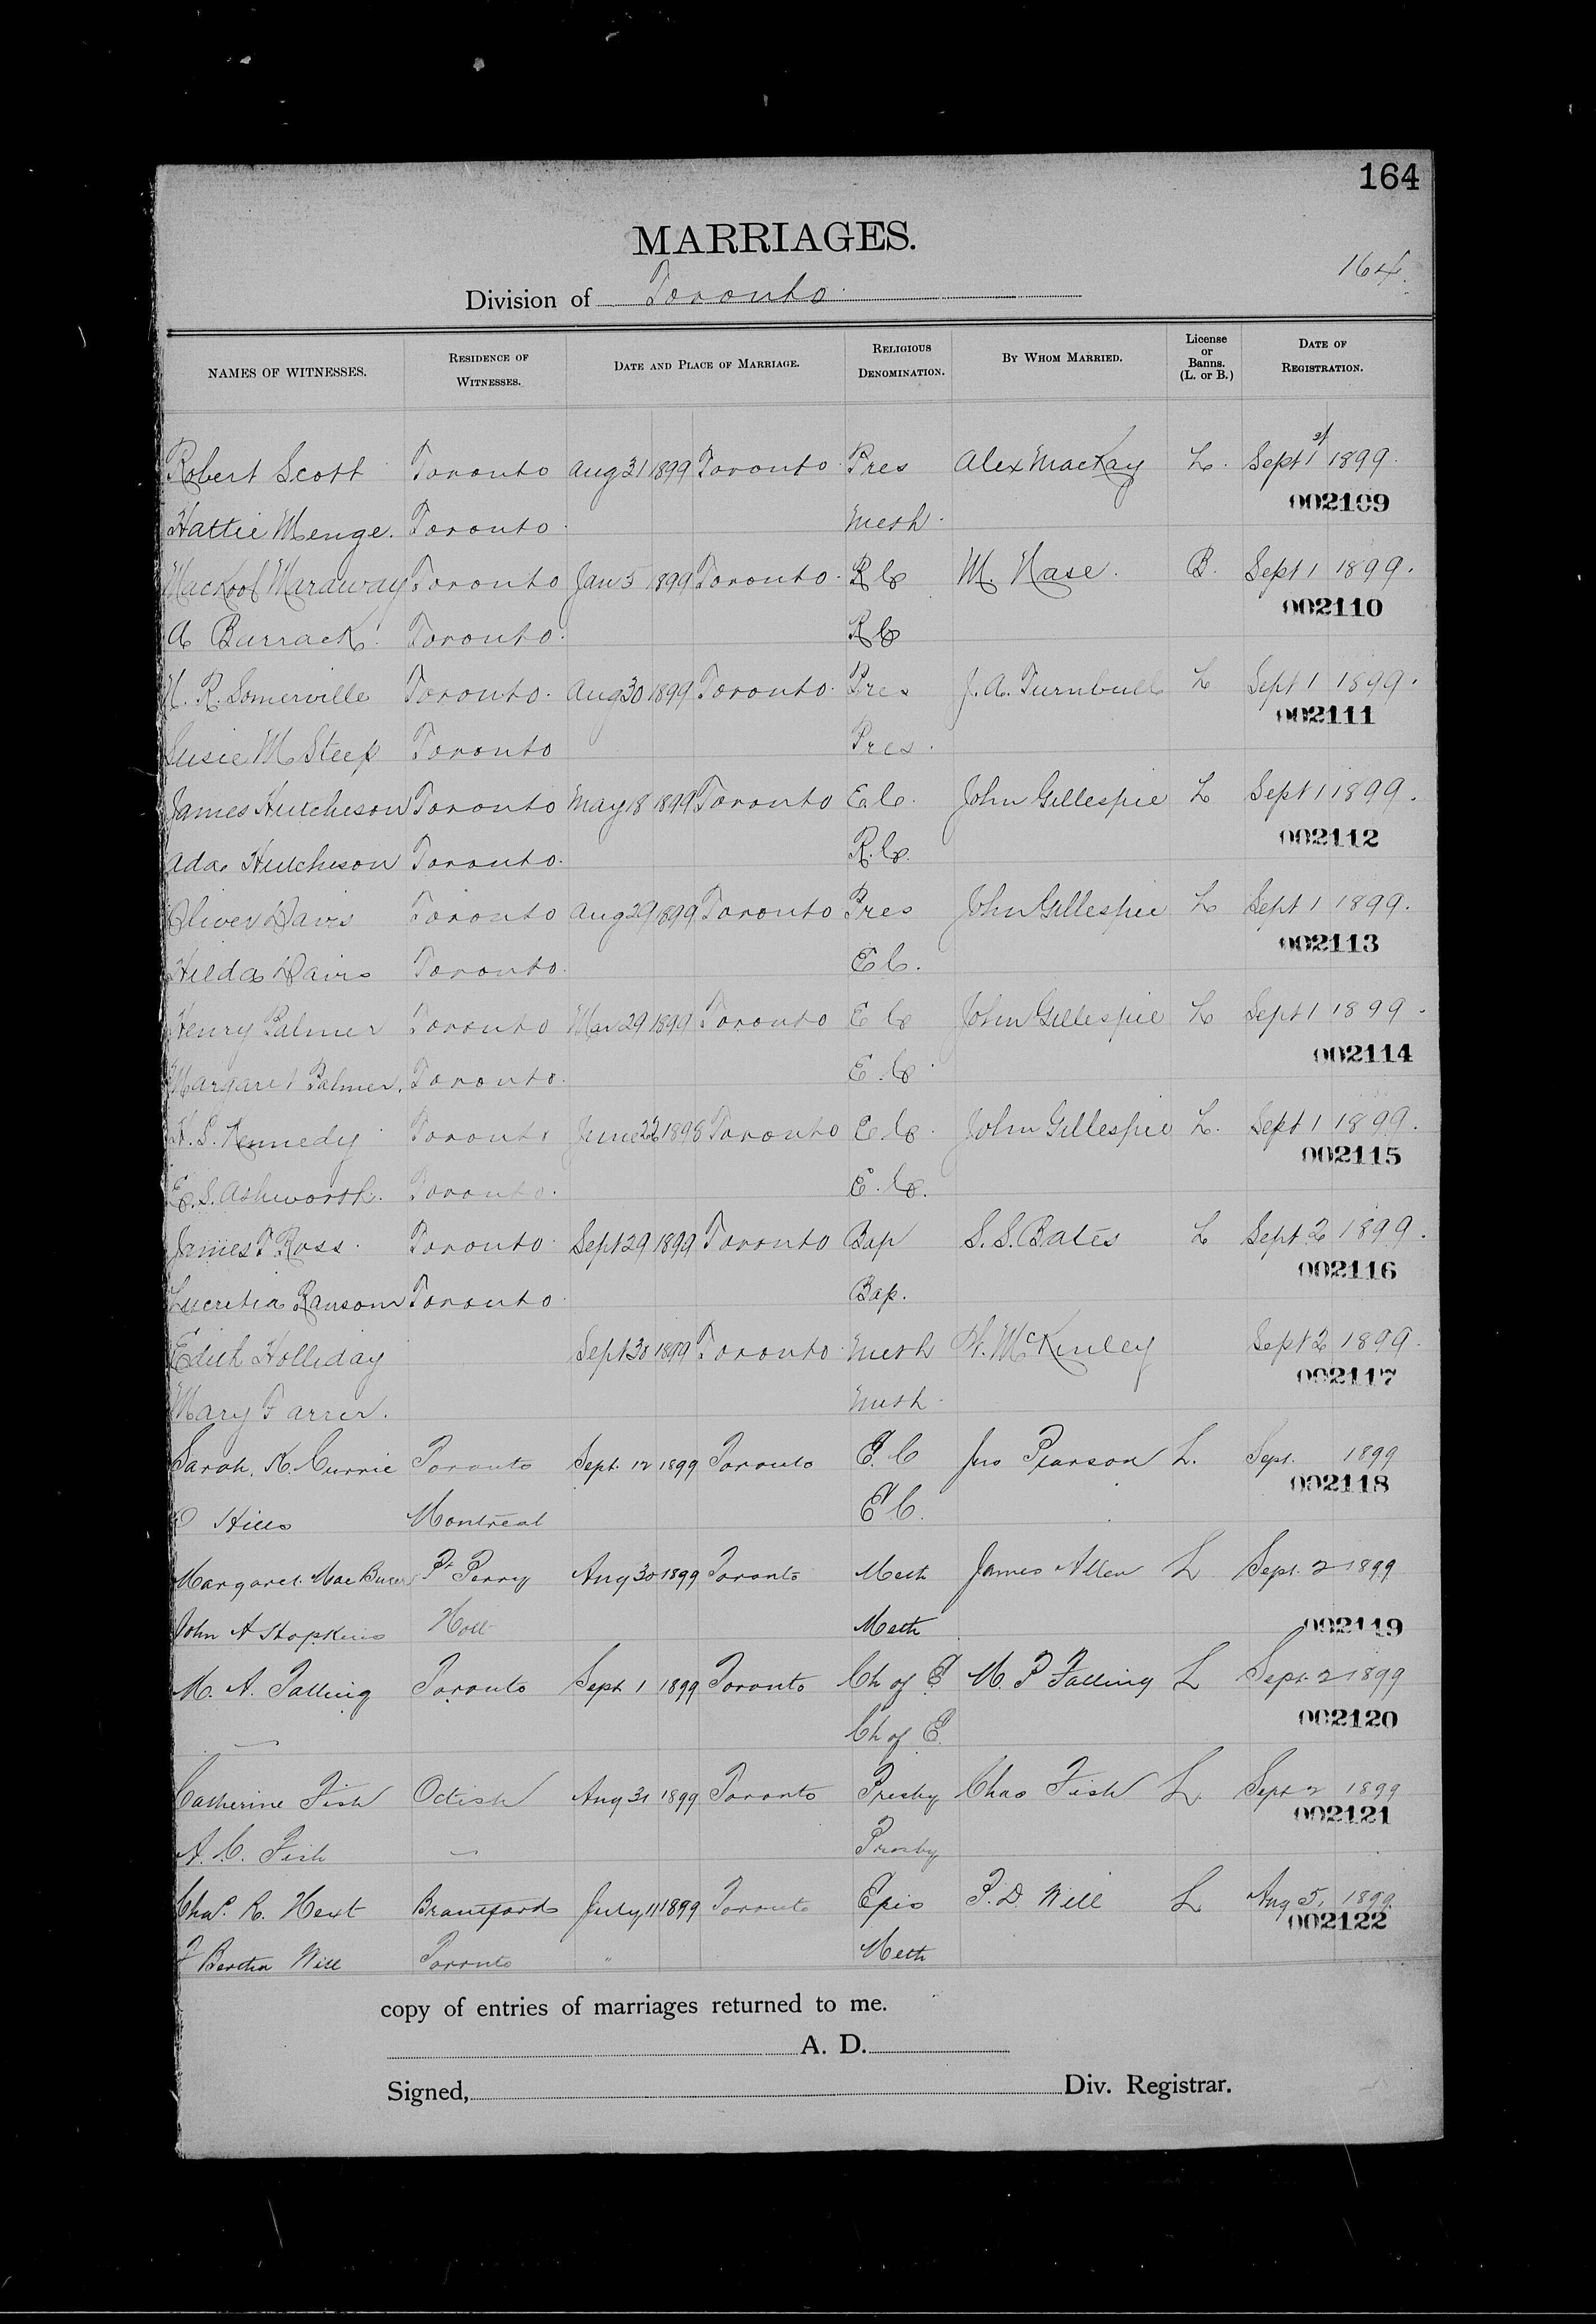 164
MARRIAGES.
164.
Division of Toronto.
NAMES OF WITNESSES. RESIDENCE OF WITNESSES. DATE AND PLACE OF MARRIAGE. RELIGIOUS DENOMINATION. BY WHOM MARRIED. License or Banns. (L. or B.) DATE OF REGISTRATION.
Robert Scott Toronto Aug 31 1899 Toronto Pres Alex MacKay L. Sept 1st 1899.
002109
Hattie Menge. Toronto. Meth.
Toronto Jan 5 1899 Toronto. R C M. B. Sept 1 1899.
002110
A Barrack. Toronto. R C
R. Somerville Toronto. Aug 30 1899 Toronto. Pres J. A. Turnbull L Sept 1 1899.
002111
Susie M Steep Toronto Pres.
James Hutcheson Toronto May 18 1899 Toronto E C. John Gillespie L Sept 1 1899.
002112
Ada Hutcheson Toronto. R. C.
Oliver Davis Toronto Aug 29 1899 Toronto Pres John Gillespie L Sept 1 1899.
002113
Hilda Davis Toronto. E C.
Henry Palmer Toronto Mar 29 1899 Toronto E C John Gillespie L Sept 1 1899.
002114
Margaret Palmer. Toronto. E. C.
H. S. Kennedy Toronto June 1898 Toronto E C. John Gillespie L. Sept 1 1899.
002115
E. S. Ashworth. Toronto. E. C.
James T Ross. Toronto Sept 29 1899 Toronto Bap S. S. Bates L Sept 2 1899.
002116
Lucretia Ransom Toronto. Bap.
Edith Holliday Sept 30 1899 Toronto Meth W. McKinley Sept 2 1899.
002117
Mary Farrer. Meth.
Sarah. K. Currie Toronto Sept. 12 1899 Toronto E. C Jno Pearson L. Sept. 1899
002118
Hills Montreal E C.
Margaret Mae Pt Perry Aug 30 1899 Toronto Meth James Allen L Sept. 2 1899
002119
John A Hopkins Holt Meth
M. A. Talling Toronto Sept 1 1899 Toronto Ch of E M. P Talling L Sept. 2 1899
002120
Ch of E.
Catherine Fish Aug 31 1899 Toronto Presby Chas Fish L Sept 2 1899
002121
A. C. Fish Presby
Chas. R. Hext Brantford July 11 1899 Toronto Epis P. D. Will L Aug 5, 1899.
002122
F Bertha Will Toronto " Meth
copy of entries of marriages returned to me.
A. D.
Signed, Div. Registrar.